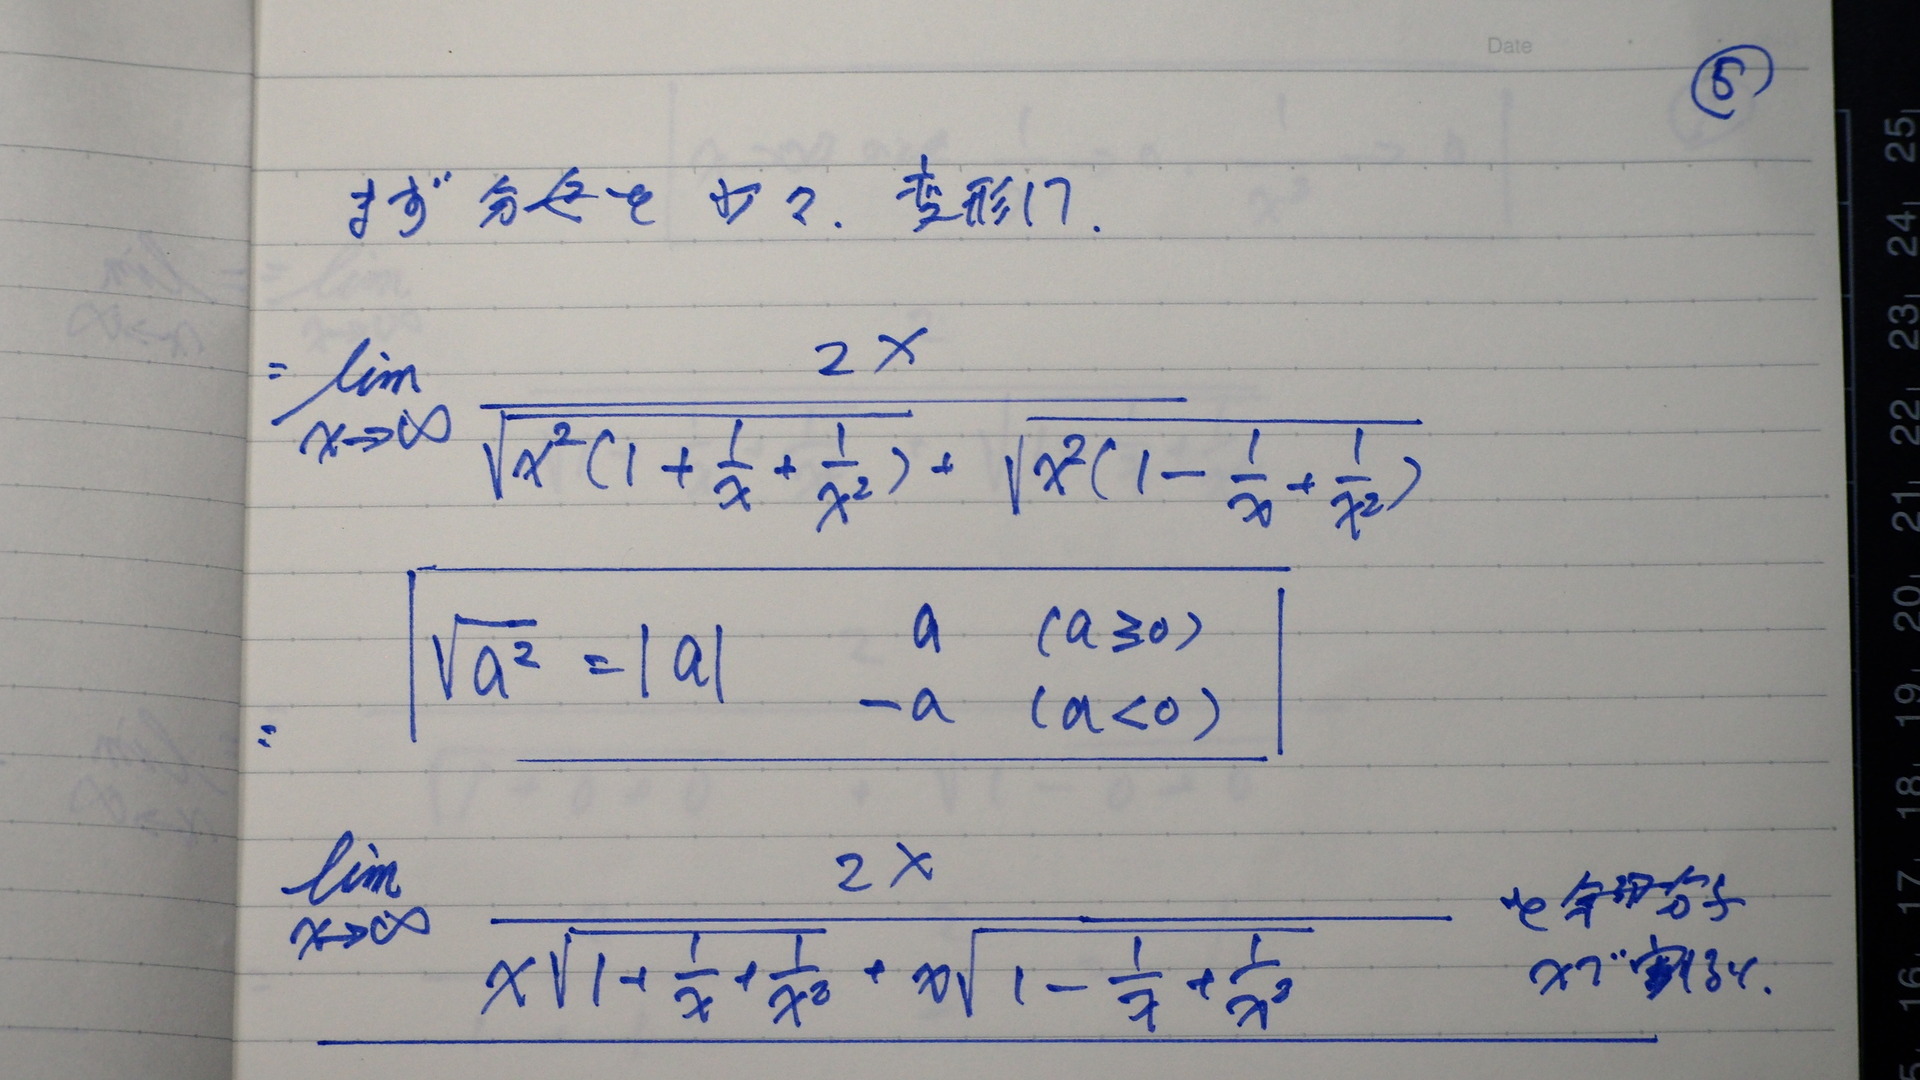 Date
⑤
まず 分母を 변形して.
= lim x→∞ 2x / √x²(1 + 1/x + 1/x²) + √x²(1 − 1/x + 1/x²)
√a² = |a| a (a≧0)
−a (a<0)
=
lim x→∞ 2x / x√1 + 1/x + 1/x² + x√1 − 1/x + 1/x²
を 分母分子
xで割ると.
25
24
23
22
21
20
19
18
17
16